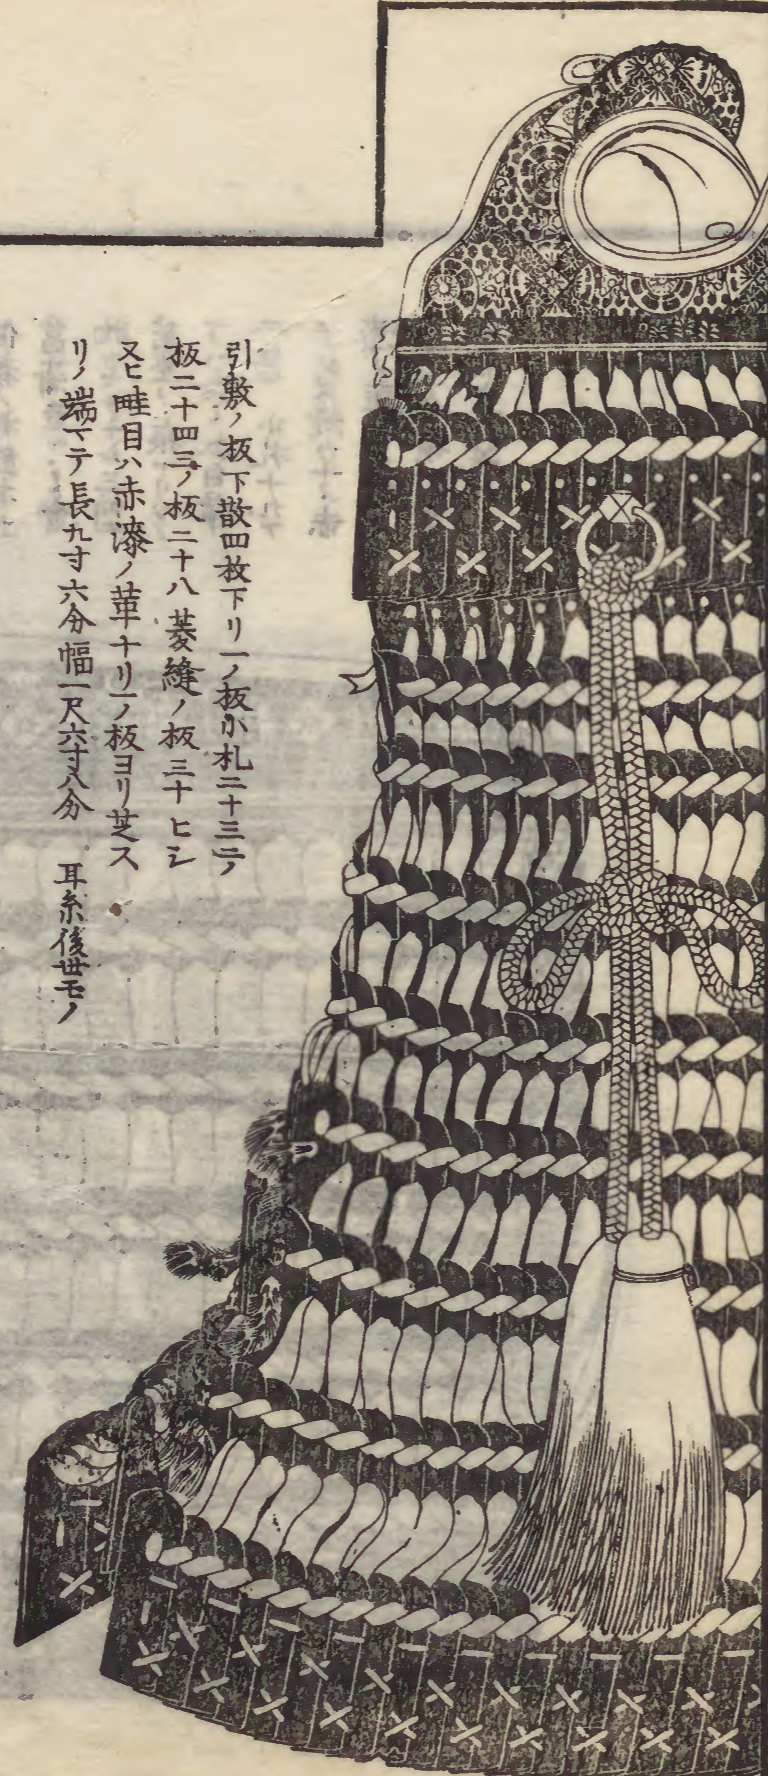 引敷ノ板下散四枚下リ一ノ板小札二十三二ノ
板二十四三ノ板二十八菱縫ノ板三十ヒシ
又ヒ畦目ハ赤漆ノ革ナリ一ノ板ヨリ芝ス
リノ端マテ長九寸六分幅一尺六寸八分
耳糸後世モノ